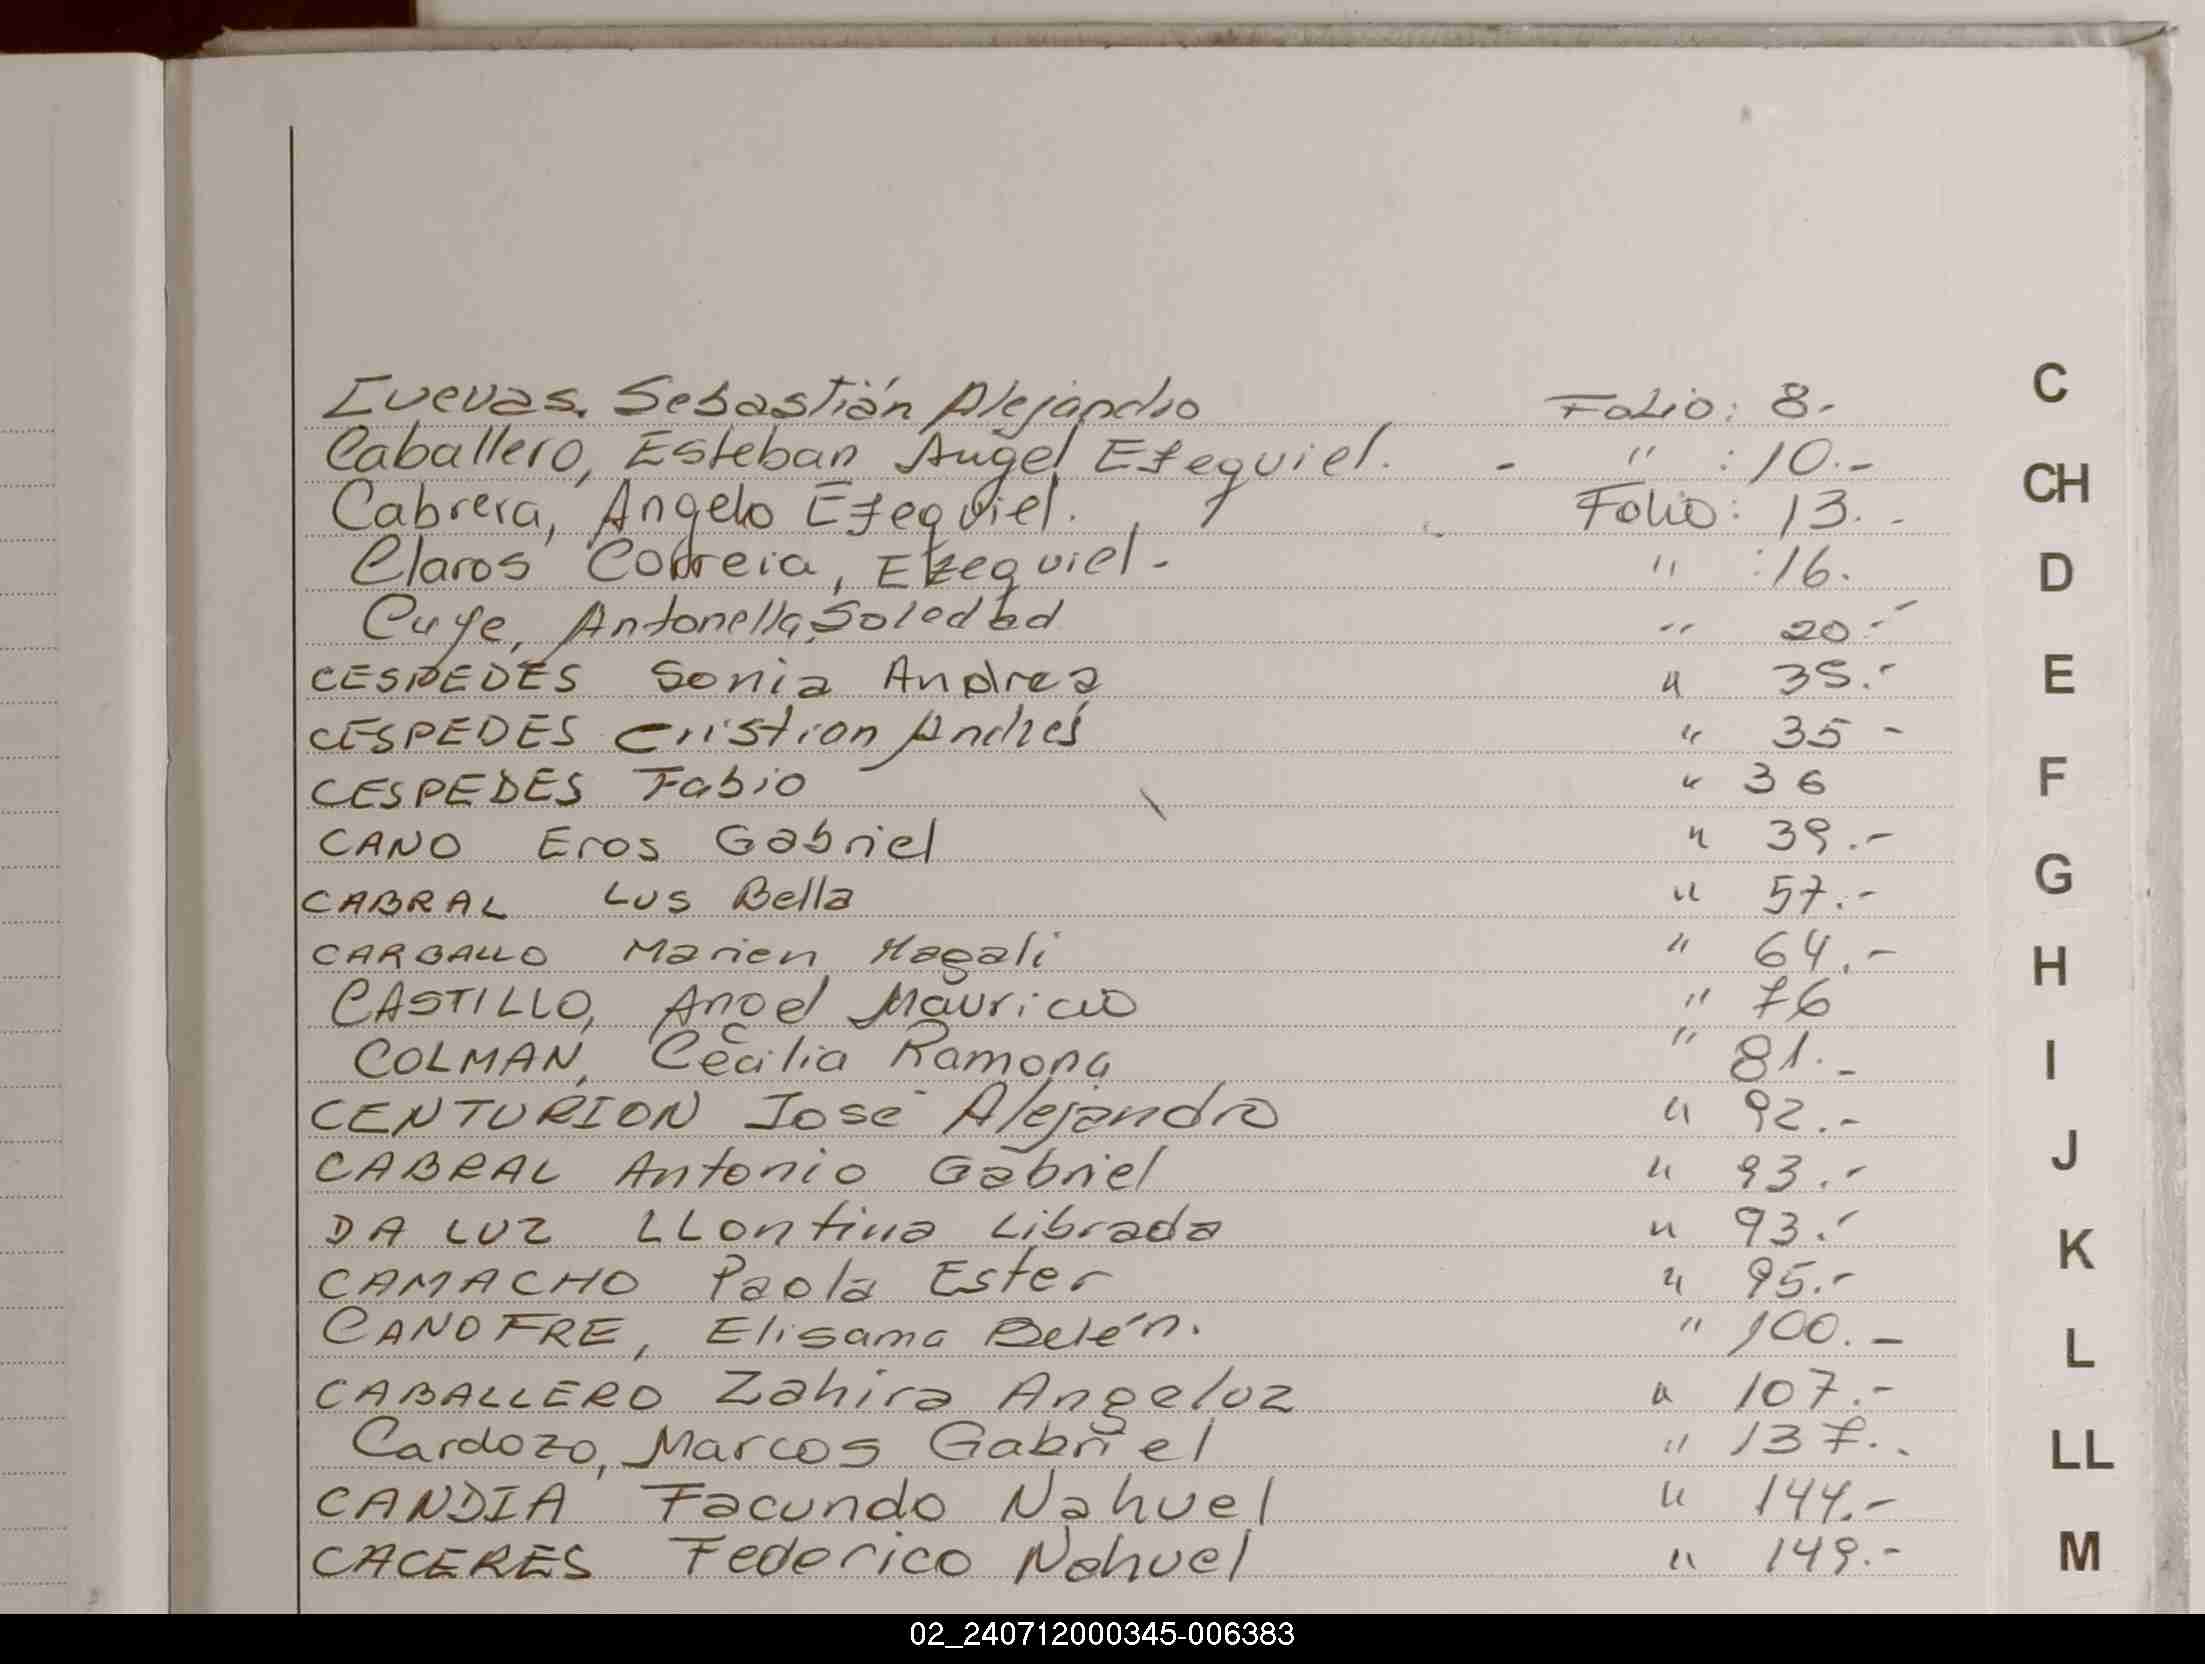 Cuevas. Sebastián Alejandro Folio: 8.-
C
Caballero, Esteban Angel Ezequiel. - " : 10.-
CH
Cabrera, Angelo Ezequiel. Folio: 13.-
Claros Correia, Ezequiel.- " : 16.
D
Cuye, Antonella Soledad " 20.-
CESPEDES Sonia Andrea " 35.-
E
CESPEDES Cristian Andrés " 35 -
CESPEDES Fabio " 36
F
CANO Eros Gabriel " 39.-
CABRAL Lus Bella " 57.-
G
CARBALLO Marien Magali " 64.-
H
CASTILLO, Angel Mauricio " 76
COLMAN, Cecilia Ramona " 81.-
I
CENTURION José Alejandro " 92.-
CABRAL Antonio Gabriel " 93.-
J
DA LUZ LLontina Librada " 93.-
K
CAMACHO Paola Ester " 95.-
CANOFRE, Elisama Belén. " 100.-
L
CABALLERO Zahira Angeluz " 107.-
Cardozo, Marcos Gabriel " 137.-
LL
CANDIA Facundo Nahuel " 144.-
CACERES Federico Nahuel " 149.-
M
02_240712000345-006383